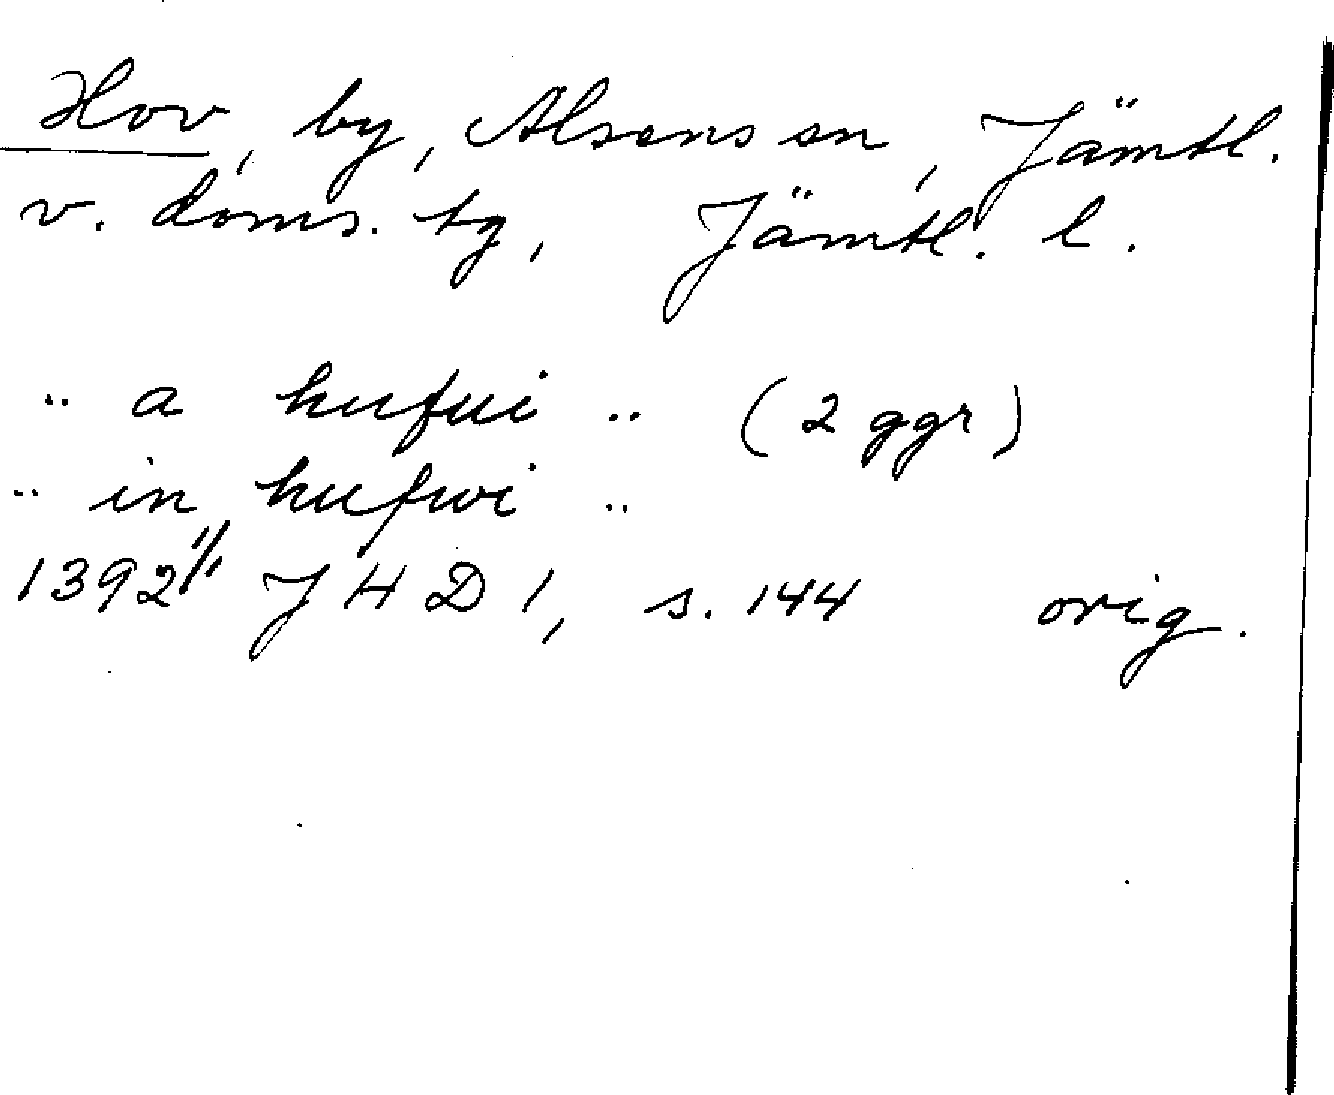 Hov, by, Alsens sn, Jämtl.
v. doms. tg, Jämtl. l.
.. a hufui .. (2 ggr)
.. in hufwi ..
1392 1/1 J H D 1, s. 144 orig.